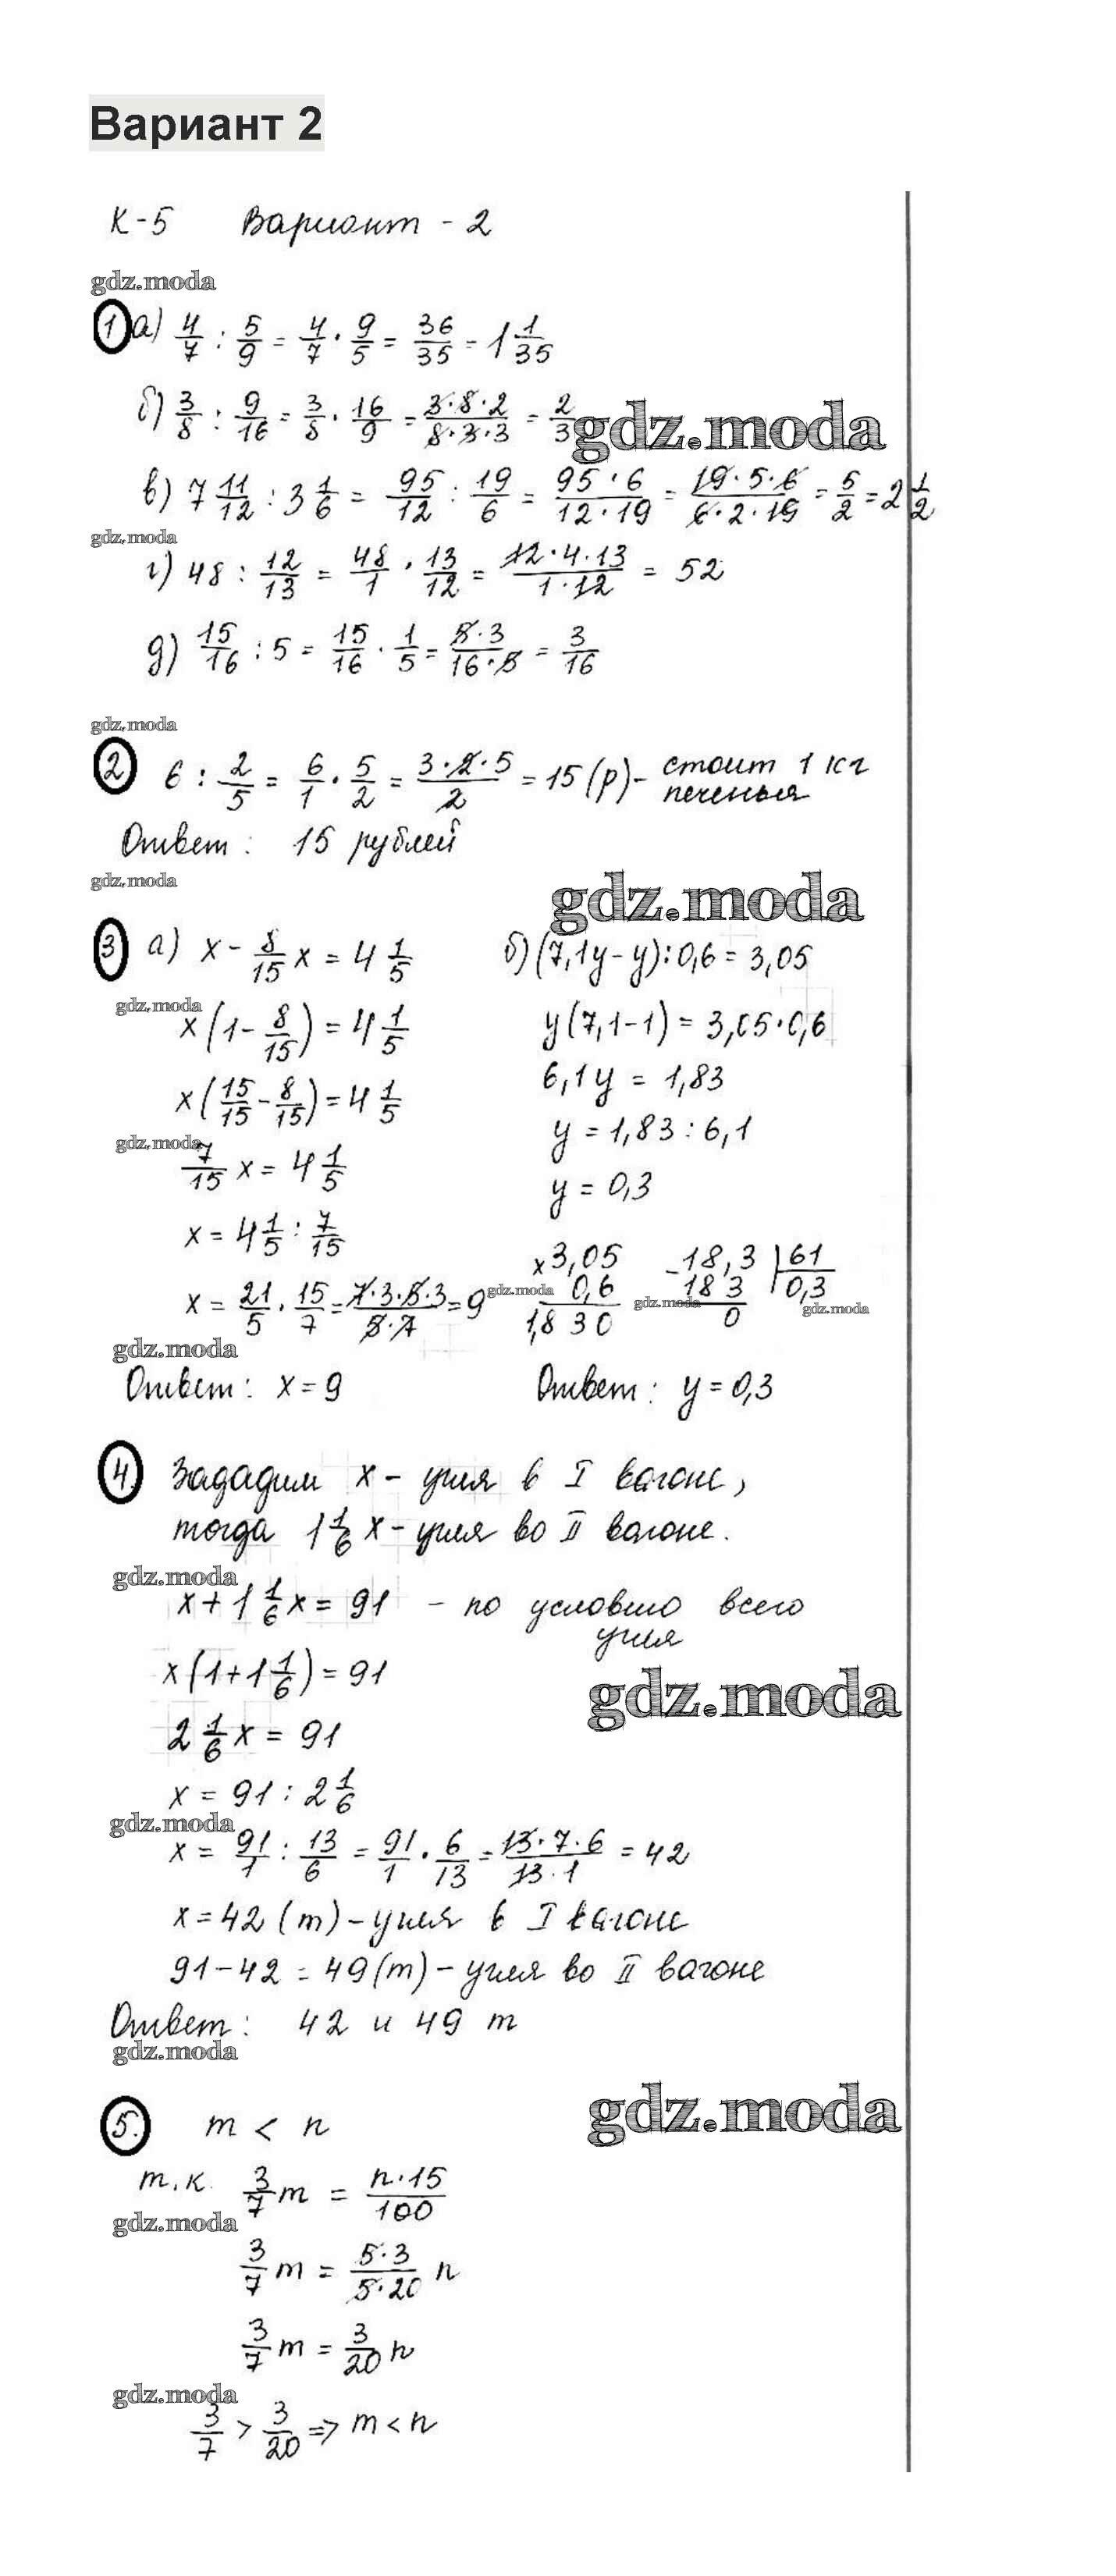 Вариант 2
К-5 Вариант - 2
gdz.moda
1 а) 4/7 : 5/9 = 4/7 · 9/5 = 36/35 = 1 1/35
б) 3/8 : 9/16 = 3/8 · 16/9 = 3·8·2/8·3·3 = 2/3
gdz.moda
в) 7 11/12 : 3 1/6 = 95/12 : 19/6 = 95·6/12·19 = 19·5·6/6·2·19 = 5/2 = 2 1/2
gdz.moda
г) 48 : 12/13 = 48/1 · 13/12 = 12·4·13/1·12 = 52
д) 15/16 : 5 = 15/16 · 1/5 = 5·3/16·5 = 3/16
gdz.moda
2 6 : 2/5 = 6/1 · 5/2 = 3·2·5/2 = 15 (р) - стоит 1 кг
печенья
Ответ: 15 рублей
gdz.moda
gdz.moda
3 а) x - 8/15 x = 4 1/5
gdz.moda
x(1 - 8/15) = 4 1/5
x(15/15 - 8/15) = 4 1/5
gdz.moda
7/15 x = 4 1/5
x = 4 1/5 : 7/15
x = 21/5 · 15/7 = 7·3·5·3/5·7 = 9
gdz.moda
Ответ: x = 9
б) (7,1y - y) : 0,6 = 3,05
y(7,1 - 1) = 3,05 · 0,6
6,1y = 1,83
y = 1,83 : 6,1
y = 0,3
x 3,05
0,6
1,8 3 0
gdz.moda
- 18,3 | 61
18 3 0,3
0
gdz.moda
gdz.moda
Ответ: y = 0,3
4. Зададим x - угля в I вагоне,
тогда 1 1/6 x - угля во II вагоне.
gdz.moda
x + 1 1/6 x = 91 - по условию всего
угля
x(1 + 1 1/6) = 91
gdz.moda
2 1/6 x = 91
x = 91 : 2 1/6
gdz.moda
x = 91/1 : 13/6 = 91/1 · 6/13 = 13·7·6/13·1 = 42
x = 42 (т) - угля в I вагоне
91 - 42 = 49 (т) - угля во II вагоне
Ответ: 42 и 49 т
gdz.moda
gdz.moda
5. m < n
т.к. 3/7 m = n·15/100
gdz.moda
3/7 m = 5·3/5·20 n
3/7 m = 3/20 n
gdz.moda
3/7 > 3/20 => m < n